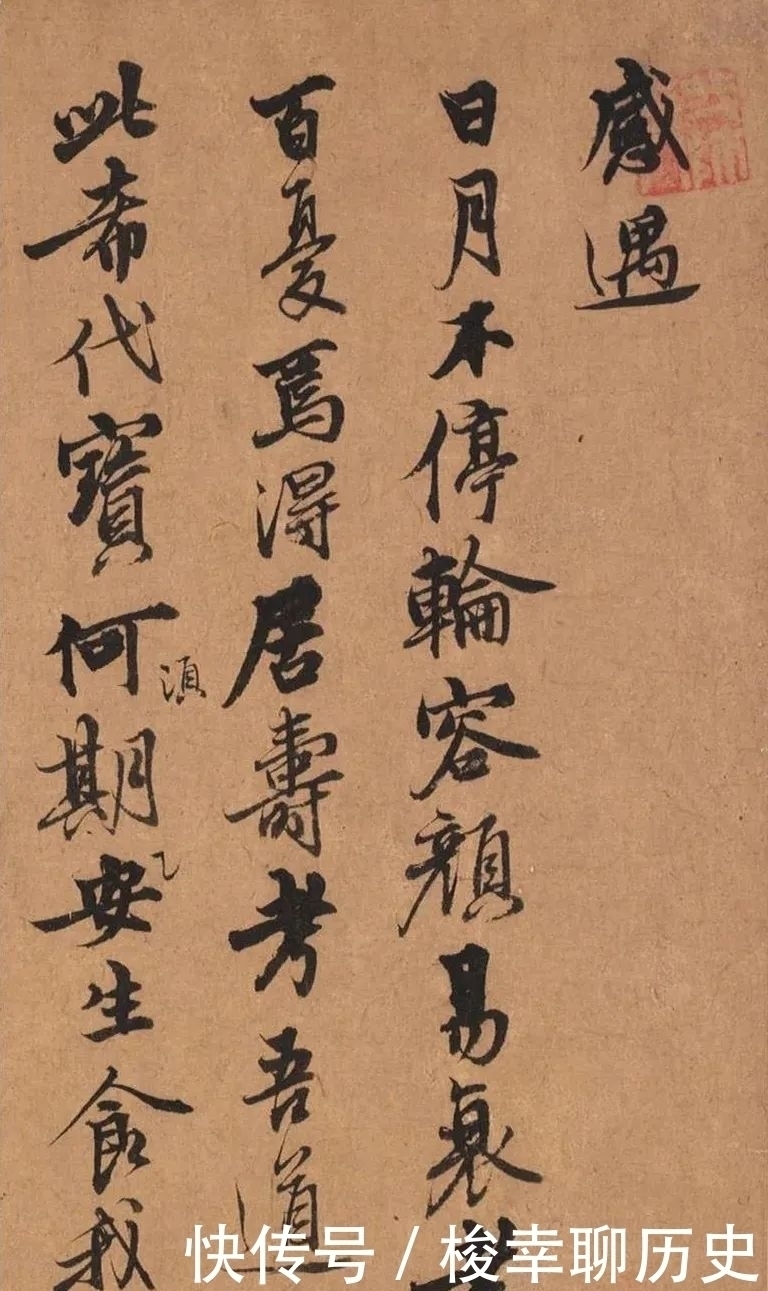 感遇
日月不停輪容顏易衰
百憂焉得居壽考吾道
此希代寶何期安生食我
須
乙
快传号 / 梭幸聊历史